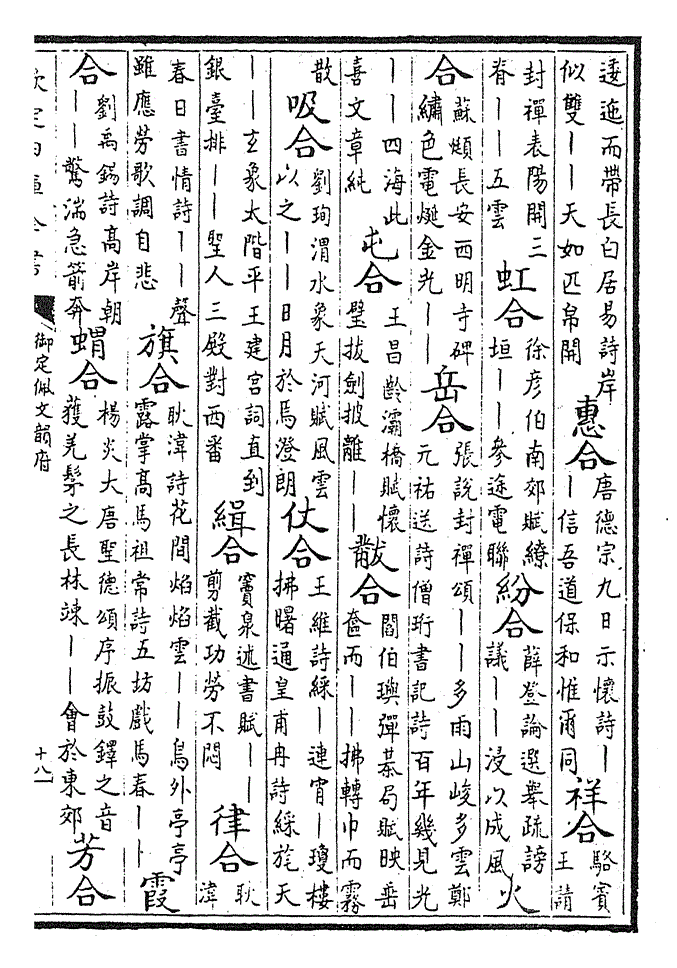 逶迤而帶長白居易詩岸
似雙丨丨天如匹帛開
惠合
唐德宗九日示懷詩丨
丨信吾道保和惟爾同
祥合
駱賓
王請
封禪表陽開三
脊丨丨五雲
虹合
徐彦伯南郊賦繚
垣丨丨參途電聯
紛合
薛登論選舉疏謗
議丨丨浸以成風
火
合
蘇頲長安西明寺碑
繡色電烻金光丨丨
岳合
張説封禪頌丨丨多雨山峻多雲鄭
元祐送詩僧珩書記詩百年幾見光
丨丨四海此
喜文章純
屯合
王昌齡灞橋賦懷
璧拔劍披離丨丨
黻合
閻伯璵彈棊局賦映岳
奩而丨丨拂轉巾而霧
散
吸合
劉珣渭水象天河賦風雲
以之丨丨日月於焉澄朗
仗合
王維詩綵丨連宵丨瓊樓
拂曙通皇甫冉詩綵旄天
丨丨玄象太階平王建宫詞直到
銀臺排丨丨聖人三殿對西番
緝合
竇臮述書賦丨丨
剪截功勞不悶
律合
耿
湋
春日書情詩丨丨聲
雖應勞歌調自悲
旗合
耿湋詩花間焰焰雲丨丨鳥外亭亭
露掌高馬祖常詩五坊戲馬春丨丨
霞
合
劉禹錫詩高岸朝
丨丨驚湍急箭奔
蝟合
楊炎大唐聖德頌序振鼓鐸之音
獲羌髳之長林竦丨丨會於東郊
芳合
欽定四庫全書
御定佩文韻府
十八